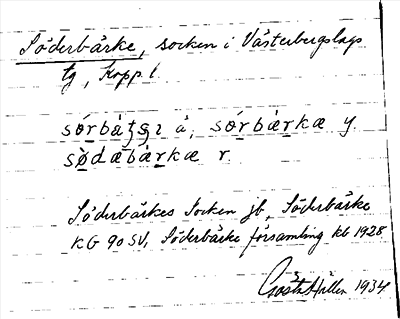 Söderbärke, socken i Västerbergslags
tg, Kopp. l.
sørbà̱ʈʂɪ å, sørbàrkæ y.
sødæbàrkæ r.
Söderbärkes Socken jb, Söderbärke
KG 90 SV, Söderbärke församling kb 1928
Gösta Hallén 1934